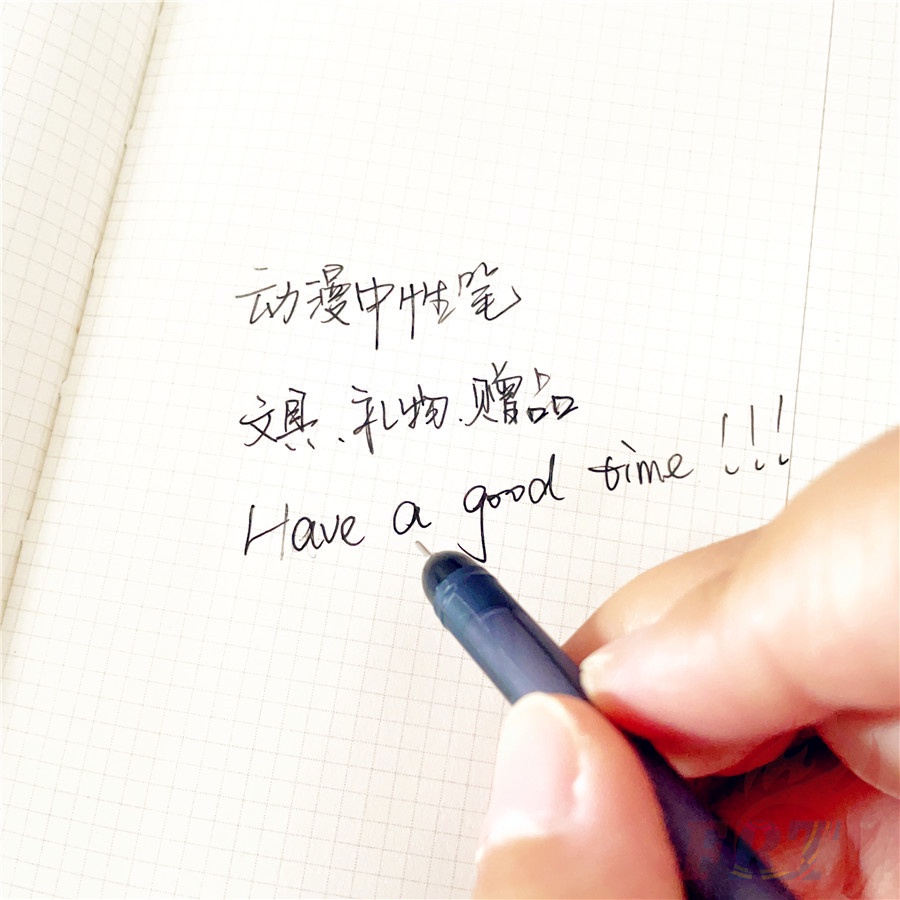 动漫中性笔
文具、礼物、赠品
Have a good time!!!